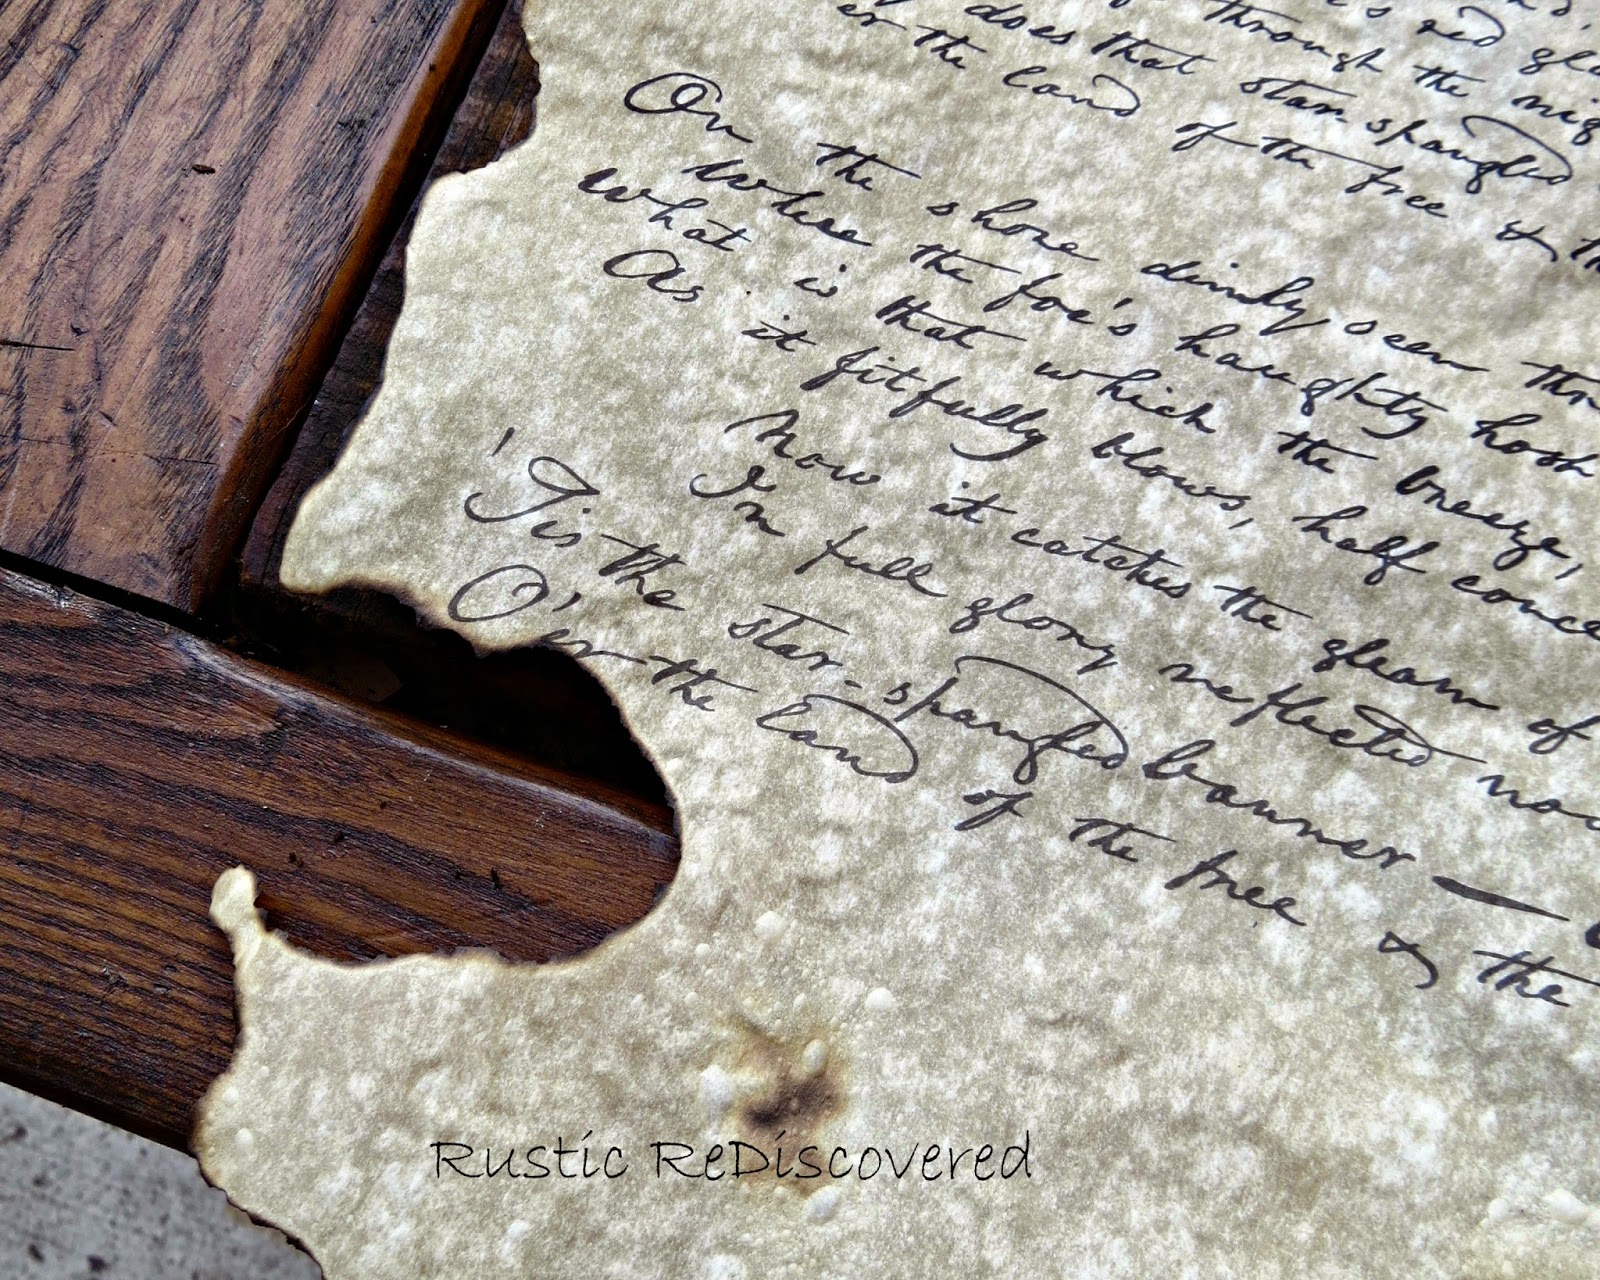 's red gla
through the nig
does that star spangled
er the land of the free & th
On the shore dimly seen thr
Where the foe's haughty host
What is that which the breeze,
As it fitfully blows, half conce
Now it catches the gleam of
In full glory reflected now
'Tis the star-spangled banner —
O'er the land of the free & the
Rustic ReDiscovered